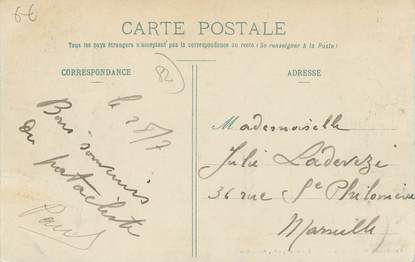 6€
CARTE POSTALE
Tous les pays étrangers n'acceptent pas la correspondance au recto (Se renseigner à la Poste)
CORRESPONDANCE
82
ADRESSE
le 28/7
Bons souvenirs
du pataciste
Paul
Mademoiselle
Julie Ladevèze
36 rue Ste Philomène
Marseille